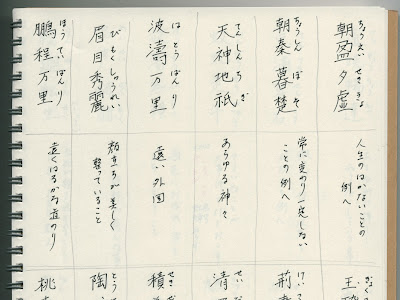 ちょうえい せききょ
朝盈夕虚
人生のはかないことの
例へ
ちょうしん ぼそ
朝秦暮楚
常に変わり一定しない
ことの例へ
けい
荊
てんしんちぎ
天神地祇
あらゆる神々
せい
清
はとうばんり
波濤万里
遠い外国
せき
積
びもくしゅうれい
眉目秀麗
顔立ちが美しく
整っていること
とう
陶
ほうていばんり
鵬程万里
遠くはるかな道のり
桃